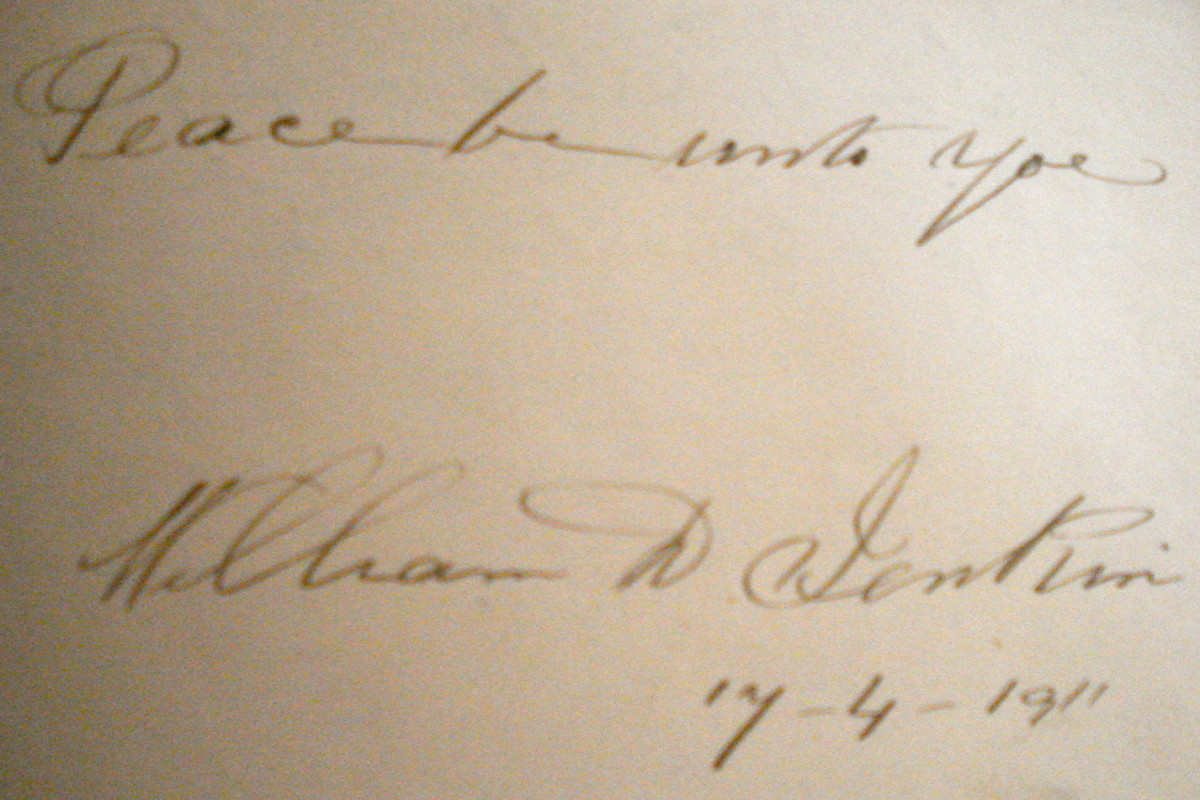 Peace be unto yoe
William D Jenkin
17-4-1911